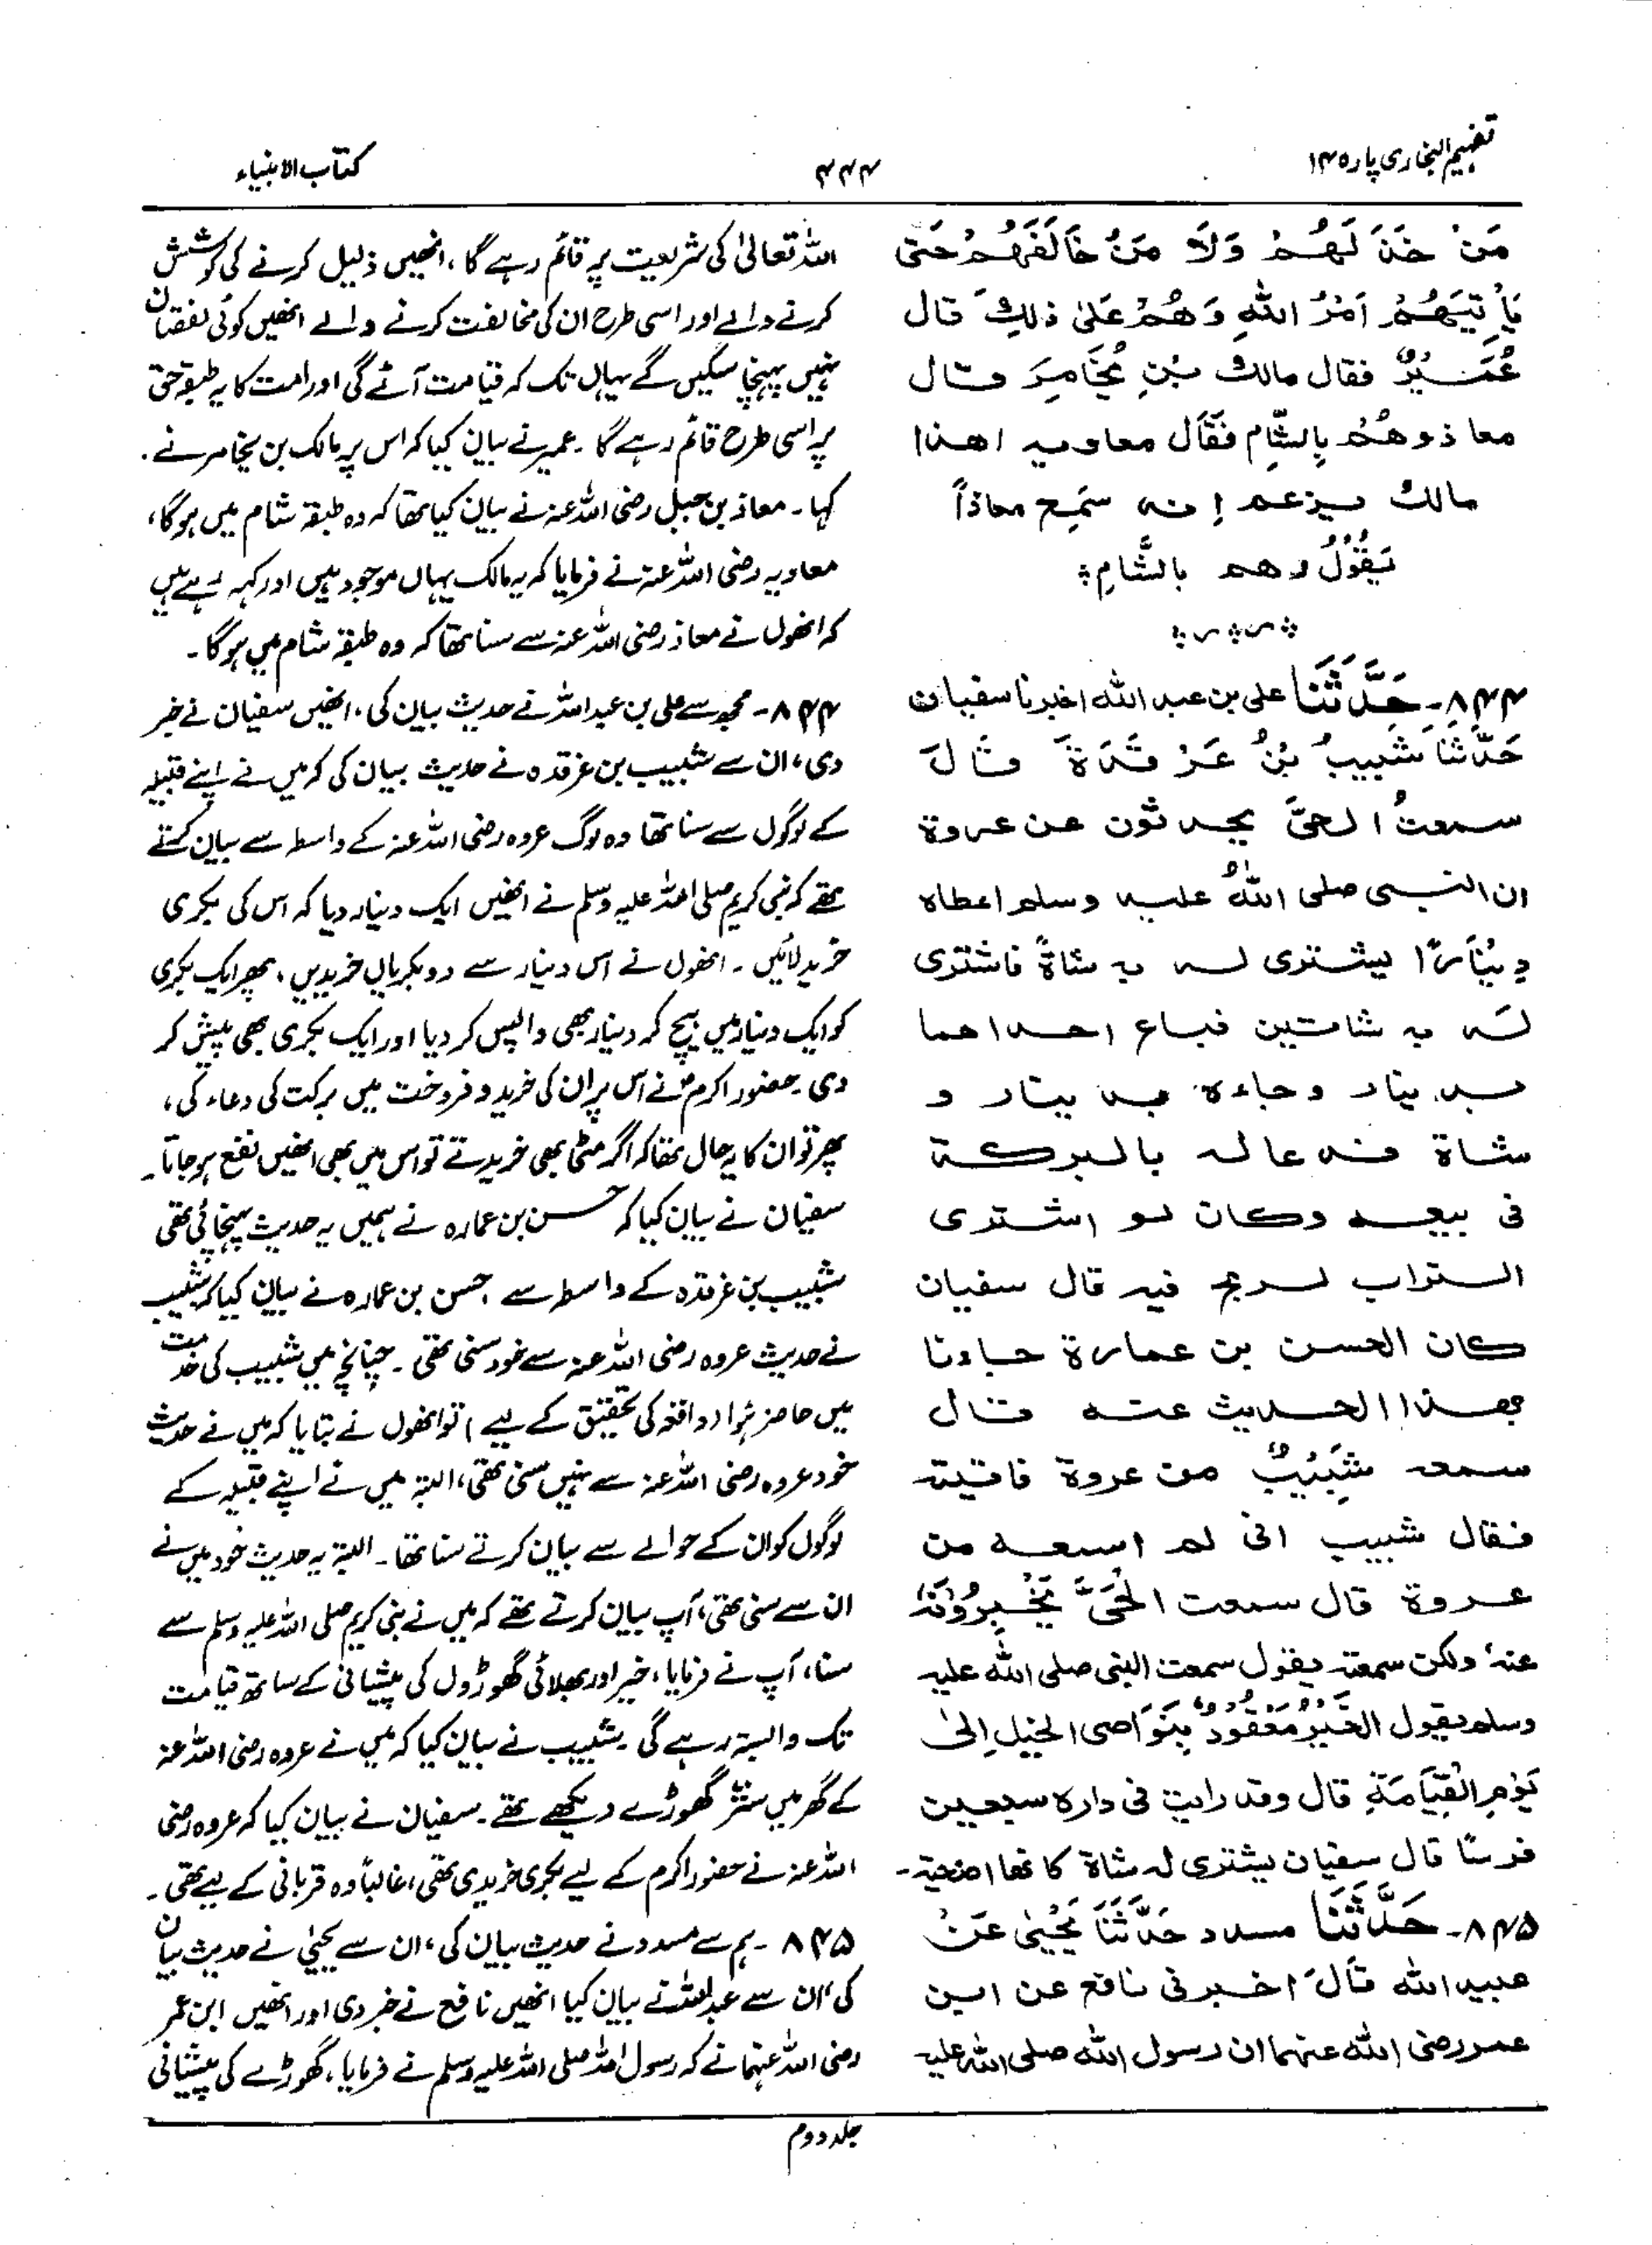 تفہیم البخاری پارہ ۱۴
۴۴۴
کتاب الانبیاء
مَنْ خَذَلَهُمْ وَلَا مَنْ خَالَفَهُمْ حَتّٰى
يَأْتِيَهُمْ اَمْرُ اللّٰهِ وَهُمْ عَلىٰ ذٰلِكَ قال
عُمَيْرٌ فقال مالك بْنِ يُخَامِرَ قال
معاذ وهُمْ بِالشَّامِ فَقَال معاوية اهذا
مالك يزعم انه سَمِعَ معاذاً
يَقُوْلُ وهم بالشَّامِ
۸۴۴۔ حَدَّثَنَا علی بن عبد الله اخبرنا سفیان
حَدَّثنَا شَبِيبُ بْنُ غَرْقَدَةَ قَالَ
سمعتُ الحیَّ یحدثون عن عروة
ان النبی صلى اللهُ علیه وسلم اعطاه
دِيْنَارًا یشتری له به شاةً فاشتری
لَه به شاتین فباع احداهما
بدینار وجاءه بدینار و
شاة فدعا له بالبركة
فی بیعه وكان لو اشتری
التراب لربح فیه قال سفیان
كان الحسن بن عمارة جاءنا
بهذا الحدیث عنه قال
سمعه شَبِيْبٌ من عروة فاتیته
فقال شبیب انی لم اسمعه من
عروة قال سمعت الْحَيَّ يُخْبِرُوْنَهُ
عنهُ ولكن سمعته یقول سمعت النبی صلى الله علیه
وسلم یقول الخَيْرُ مَعْقُودٌ بِنَوَاصی الخیلِ اِلىٰ
يَوْمِ الْقِيَامَةِ قال وقد رایت فی داره سبعین
فرسًا قال سفیان یشتری له شاة كانها اضحیة۔
۸۴۵۔ حَدَّثَنَا مسدد حَدَّثَنَا يَحْيىٰ عَنْ
عبید الله قَالَ اخبرنی نافع عن ابن
عمر رضی الله عنهما ان رسول الله صلى الله علیه
اللہ تعالیٰ کی شریعت پر قائم رہے گا، انھیں ذلیل کرنے کی کوشش
کرنے والے اور اسی طرح ان کی مخالفت کرنے والے انھیں کوئی نقصان
نہیں پہنچا سکیں گے یہاں تک کہ قیامت آئے گی اور امت کا یہ طبقہ حق
پر اسی طرح قائم رہے گا۔ عمیر نے بیان کیا کہ اس پر مالک بن یخامر نے
کہا۔ معاذ بن جبل رضی اللہ عنہ نے بیان کیا تھا کہ وہ طبقہ شام میں ہوگا،
معاویہ رضی اللہ عنہ نے فرمایا کہ یہ مالک یہاں موجود ہیں اور کہہ رہے ہیں
کہ انھوں نے معاذ رضی اللہ عنہ سے سنا تھا کہ وہ طبقہ شام میں ہوگا۔
۸۴۴۔ مجھ سے علی بن عبد اللہ نے حدیث بیان کی، انھیں سفیان نے خبر
دی، ان سے شبیب بن غرقدہ نے حدیث بیان کی کہ میں نے اپنے قبیلہ
کے لوگوں سے سنا تھا وہ لوگ عروہ رضی اللہ عنہ کے واسطہ سے بیان کرتے
تھے کہ نبی کریم صلی اللہ علیہ وسلم نے انھیں ایک دینار دیا کہ اس کی بکری
خرید لائیں۔ انھوں نے اس دینار سے دو بکریاں خریدیں، پھر ایک بکری
کو ایک دینار میں بیچ کر دینار بھی واپس کر دیا اور ایک بکری بھی پیش کر
دی۔ حضور اکرمؐ نے اس پر ان کی خرید و فروخت میں برکت کی دعاء کی،
پھر تو ان کا یہ حال تھا کہ اگر مٹی بھی خریدتے تو اس میں بھی انھیں نفع ہو جاتا۔
سفیان نے بیان کیا کہ حسن بن عمارہ نے ہمیں یہ حدیث پہنچائی تھی
شبیب بن غرقدہ کے واسطہ سے۔ حسن بن عمارہ نے بیان کیا کہ شبیب
نے حدیث عروہ رضی اللہ عنہ سے خود سنی تھی۔ چنانچہ میں شبیب کی خدمت
میں حاضر ہُوا (واقعہ کی تحقیق کے لیے) تو انھوں نے بتایا کہ میں نے حدیث
خود عروہ رضی اللہ عنہ سے نہیں سنی تھی، البتہ میں نے اپنے قبیلہ کے
لوگوں کو ان کے حوالے سے بیان کرتے سنا تھا۔ البتہ یہ حدیث خود میں نے
ان سے سنی تھی، آپ بیان کرتے تھے کہ میں نے نبی کریم صلی اللہ علیہ وسلم سے
سنا، آپ نے فرمایا، خیر اور بھلائی گھوڑوں کی پیشانی کے ساتھ قیامت
تک وابستہ رہے گی۔ شبیب نے بیان کیا کہ میں نے عروہ رضی اللہ عنہ
کے گھر میں ستر گھوڑے دیکھے تھے۔ سفیان نے بیان کیا کہ عروہ رضی
اللہ عنہ نے حضور اکرم کے لیے بکری خریدی تھی، غالباً وہ قربانی کے لیے تھی۔
۸۴۵۔ ہم سے مسدد نے حدیث بیان کی، ان سے یحییٰ نے حدیث بیان
کی ان سے عبداللہ نے بیان کیا انھیں نافع نے خبر دی اور انھیں ابن عمر
رضی اللہ عنہما نے کہ رسول اللہ صلی اللہ علیہ وسلم نے فرمایا، گھوڑے کی پیشانی
جلد دوم